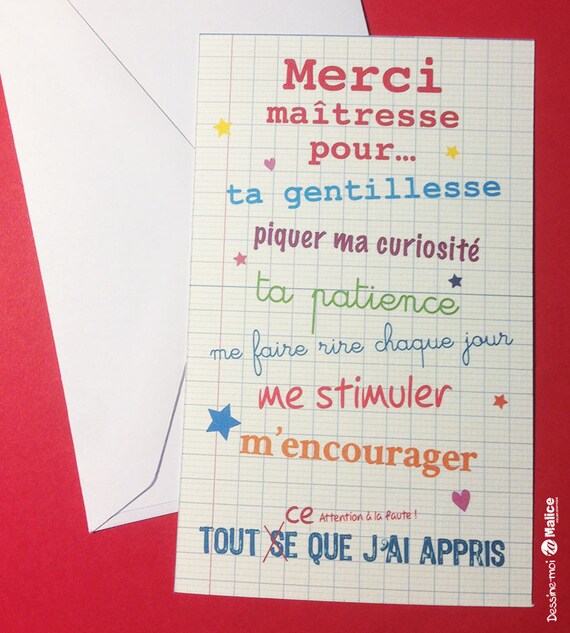 Merci
maîtresse
pour...
ta gentillesse
piquer ma curiosité
ta patience
me faire rire chaque jour
me stimuler
m'encourager
ce Attention à la faute !
TOUT SE QUE J'AI APPRIS
Dessine-moi Malice